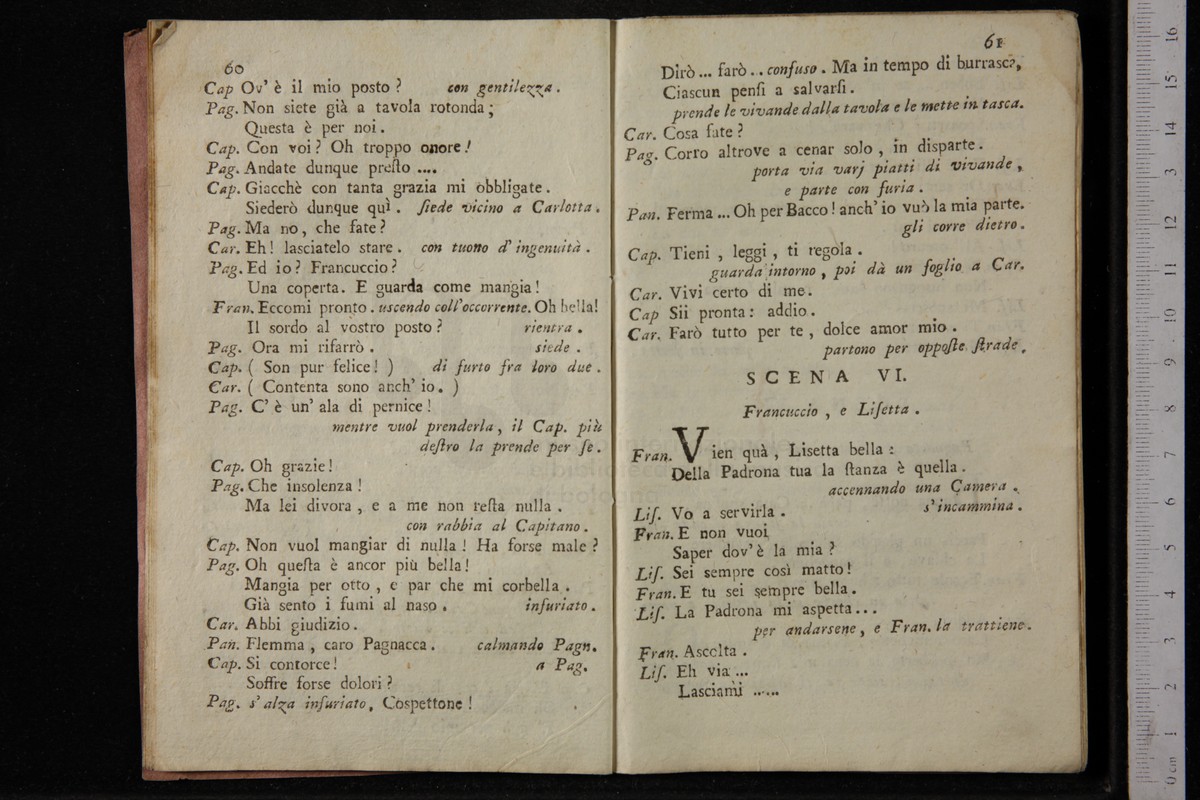 60
Cap Ov' è il mio posto ? con gentilezza .
Pag. Non siete già a tavola rotonda ;
Questa è per noi .
Cap. Con voi ? Oh troppo onore !
Pag. Andate dunque preſto ....
Cap. Giacchè con tanta grazia mi obbligate .
Siederò dunque quì . ſiede vicino a Carlotta .
Pag. Ma no , che fate ?
Car. Eh ! lasciatelo stare . con tuono d' ingenuità .
Pag. Ed io ? Francuccio ?
Una coperta . E guarda come mangia !
Fran. Eccomi pronto . uscendo coll' occorrente . Oh bella !
Il sordo al vostro posto ? rientra .
Pag. Ora mi rifarrò . siede .
Cap. ( Son pur felice ! ) di furto fra loro due .
Car. ( Contenta sono anch' io . )
Pag. C' è un' ala di pernice !
mentre vuol prenderla , il Cap. più
deſtro la prende per ſe .
Cap. Oh grazie !
Pag. Che insolenza !
Ma lei divora , e a me non reſta nulla .
con rabbia al Capitano .
Cap. Non vuol mangiar di nulla ! Ha forse male ?
Pag. Oh queſta è ancor più bella !
Mangia per otto , e par che mi corbella .
Già sento i fumi al naso . infuriato .
Car. Abbi giudizio .
Pan. Flemma , caro Pagnacca . calmando Pagn.
Cap. Si contorce ! a Pag.
Soffre forse dolori ?
Pag. s' alza infuriato , Cospettone !
61
Dirò ... farò .. confuso . Ma in tempo di burrasca ,
Ciascun penſi a salvarſi .
prende le vivande dalla tavola e le mette in tasca .
Car. Cosa fate ?
Pag. Corro altrove a cenar solo , in disparte .
porta via varj piatti di vivande ,
e parte con furia .
Pan. Ferma ... Oh per Bacco ! anch' io vuò la mia parte .
gli corre dietro .
Cap. Tieni , leggi , ti regola .
guarda intorno , poi dà un foglio a Car.
Car. Vivi certo di me .
Cap Sii pronta : addio .
Car. Farò tutto per te , dolce amor mio .
partono per oppoſte ſtrade .
SCENA VI.
Francuccio , e Liſetta .
Fran. Vien quà , Lisetta bella :
Della Padrona tua la ſtanza è quella .
accennando una Camera .
Liſ. Vo a servirla . s' incammina .
Fran. E non vuoi
Saper dov' è la mia ?
Liſ. Sei sempre così matto !
Fran. E tu sei sempre bella .
Liſ. La Padrona mi aspetta ...
per andarsene , e Fran. la trattiene .
Fran. Ascolta .
Liſ. Eh via ...
Lasciami ......